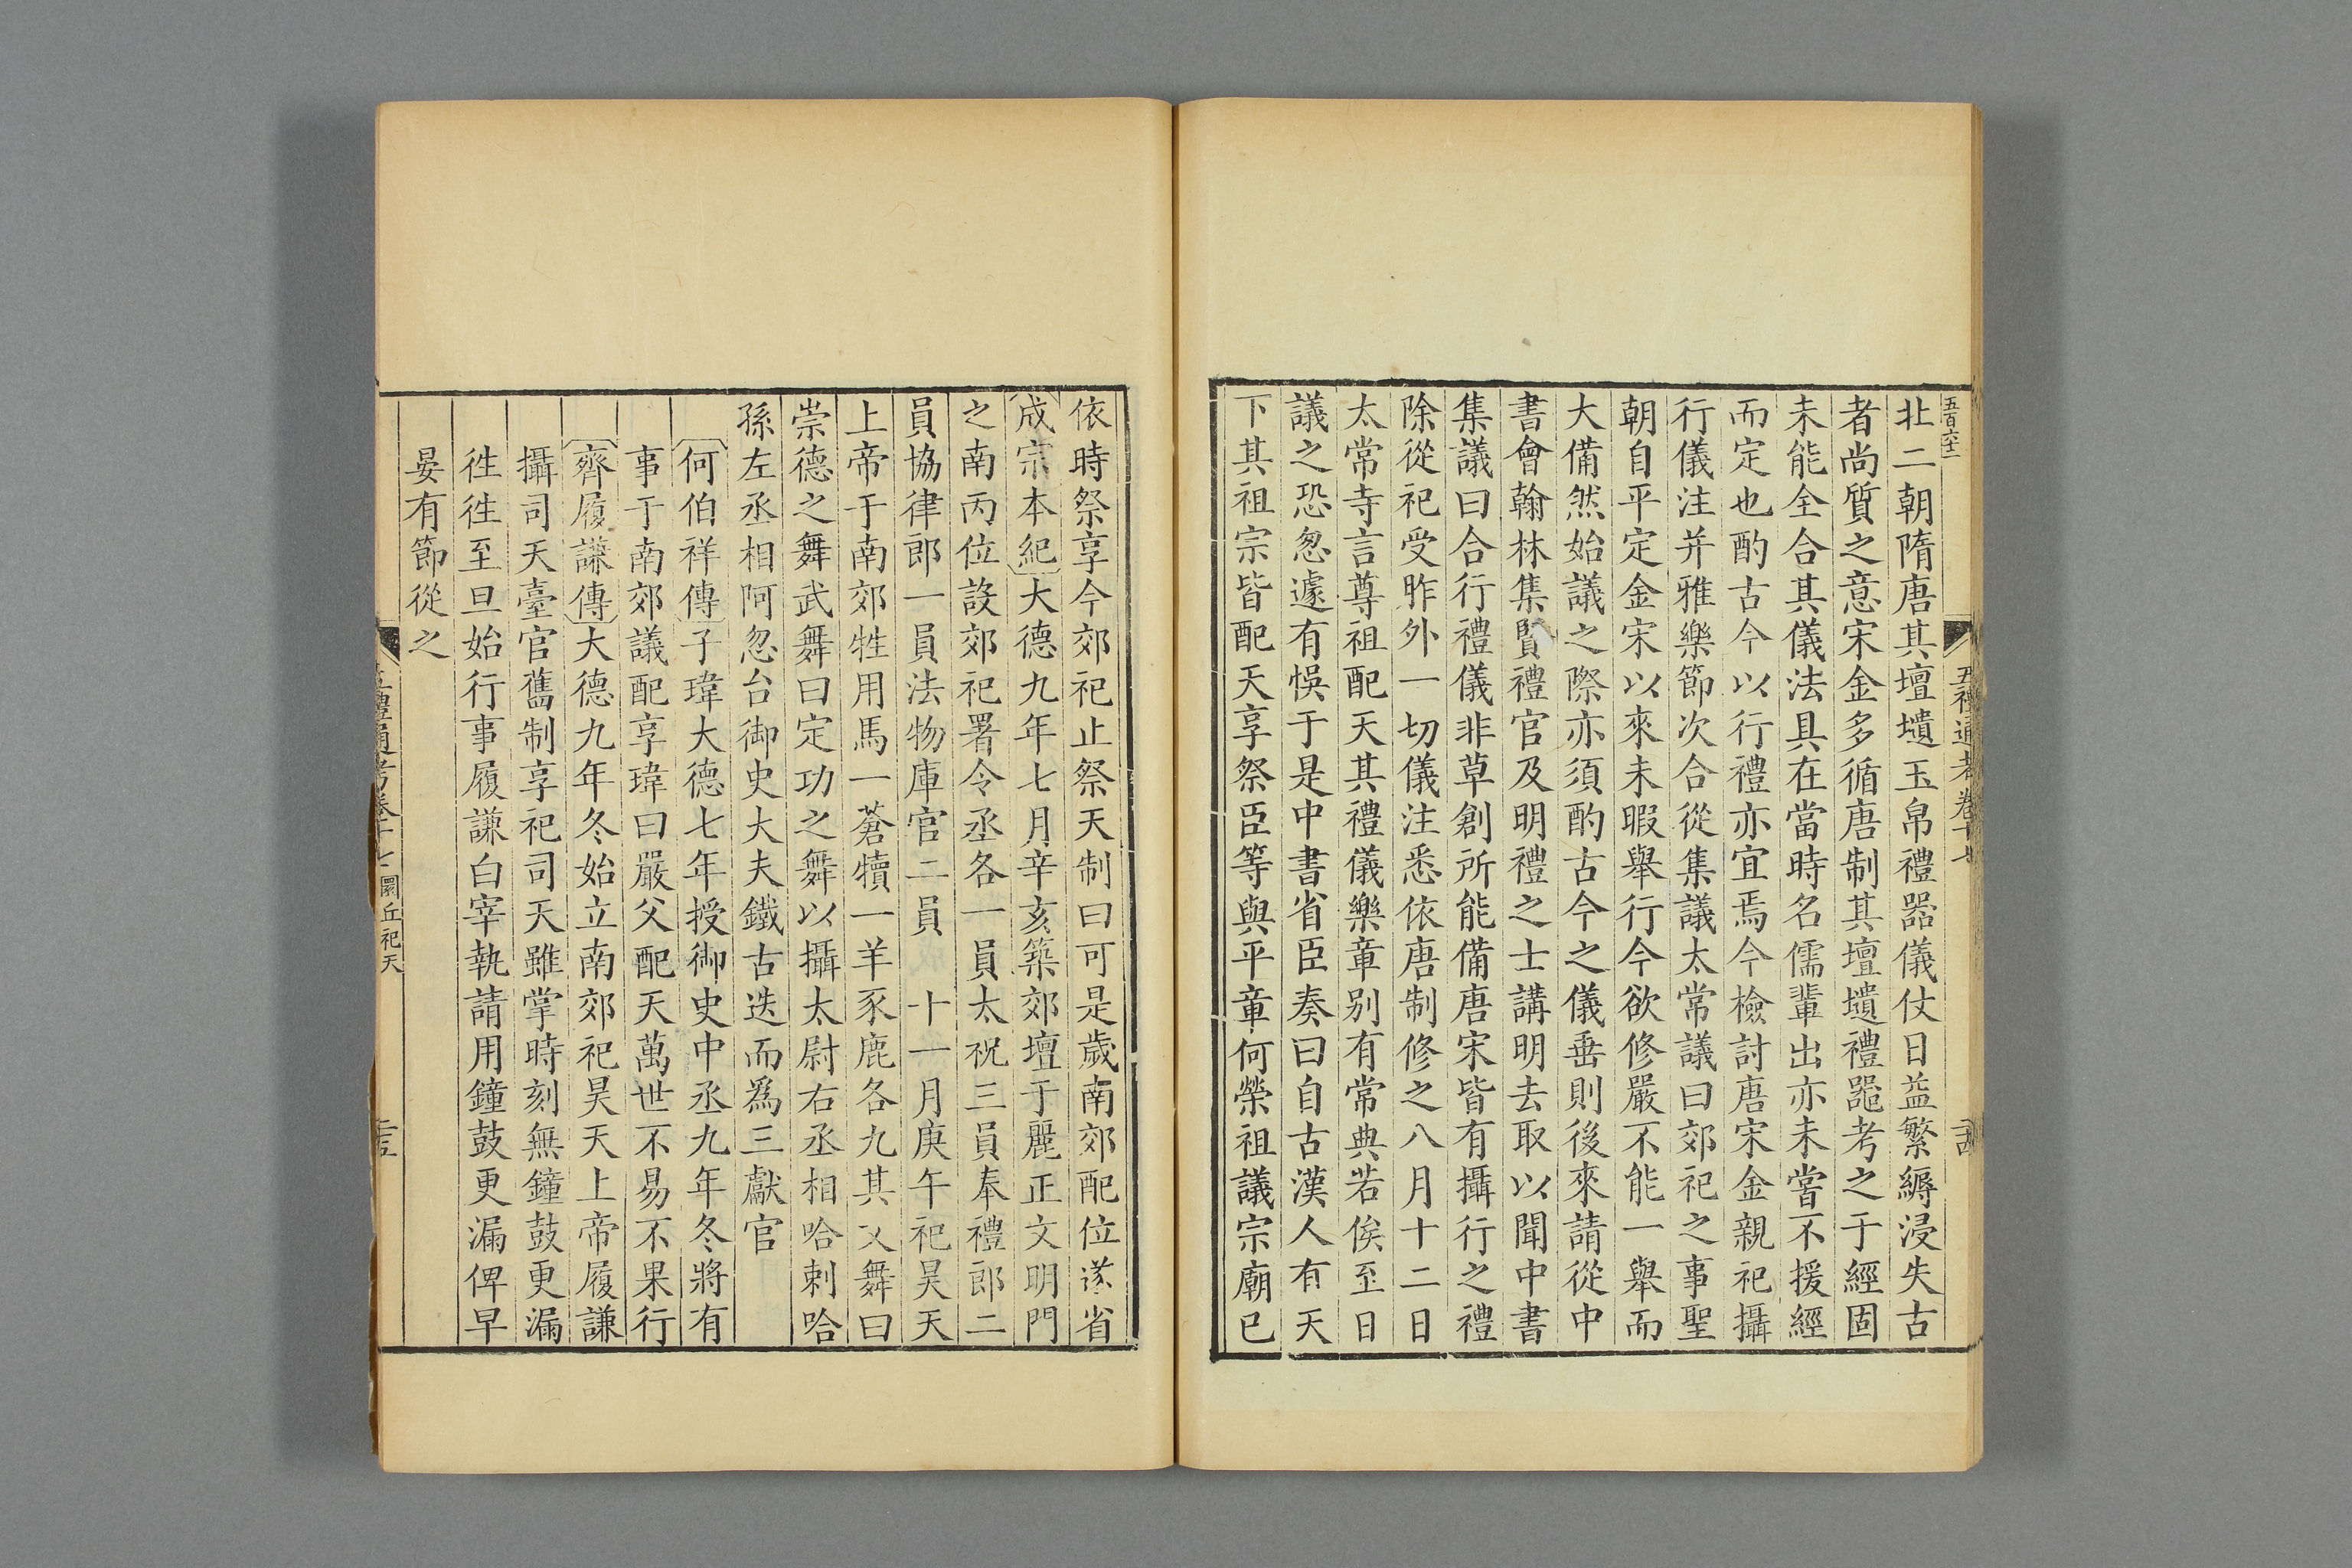 五百六十二
五禮通考卷十七
二十四
北二朝隋唐其壇壝玉帛禮器儀仗日益繁縟浸失古
者尚質之意宋金多循唐制其壇壝禮器考之于經固
未能全合其儀法具在當時名儒輩出亦未嘗不援經
而定也酌古今以行禮亦宜焉今檢討唐宋金親祀攝
行儀注并雅樂節次合從集議太常議曰郊祀之事聖
朝自平定金宋以來未暇舉行今欲修嚴不能一舉而
大備然始議之際亦須酌古今之儀垂則後來請從中
書會翰林集賢禮官及明禮之士講明去取以聞中書
集議曰合行禮儀非草創所能備唐宋皆有攝行之禮
除從祀受胙外一切儀注悉依唐制修之八月十二日
太常寺言尊祖配天其禮儀樂章别有常典若俟至日
議之恐怱遽有悞于是中書省臣奏曰自古漢人有天
下其祖宗皆配天享祭臣等與平章何榮祖議宗廟已
依時祭享今郊祀止祭天制曰可是歲南郊配位遂省
成宗本紀大德九年七月辛亥築郊壇于麗正文明門
之南丙位設郊祀署令丞各一員太祝三員奉禮郎二
員協律郎一員法物庫官二員 十一月庚午祀昊天
上帝于南郊牲用馬一蒼犢一羊豕鹿各九其文舞曰
崇德之舞武舞曰定功之舞以攝太尉右丞相哈剌哈
孫左丞相阿忽台御史大夫鐵古迭而爲三獻官
何伯祥傳子瑋大德七年授御史中丞九年冬將有
事于南郊議配享瑋曰嚴父配天萬世不易不果行
齊履謙傳大德九年冬始立南郊祀昊天上帝履謙
攝司天臺官舊制享祀司天雖掌時刻無鐘鼓更漏
徃徃至旦始行事履謙白宰執請用鐘鼓更漏俾早
晏有節從之
五禮通考卷十七 圜丘祀天
二十五